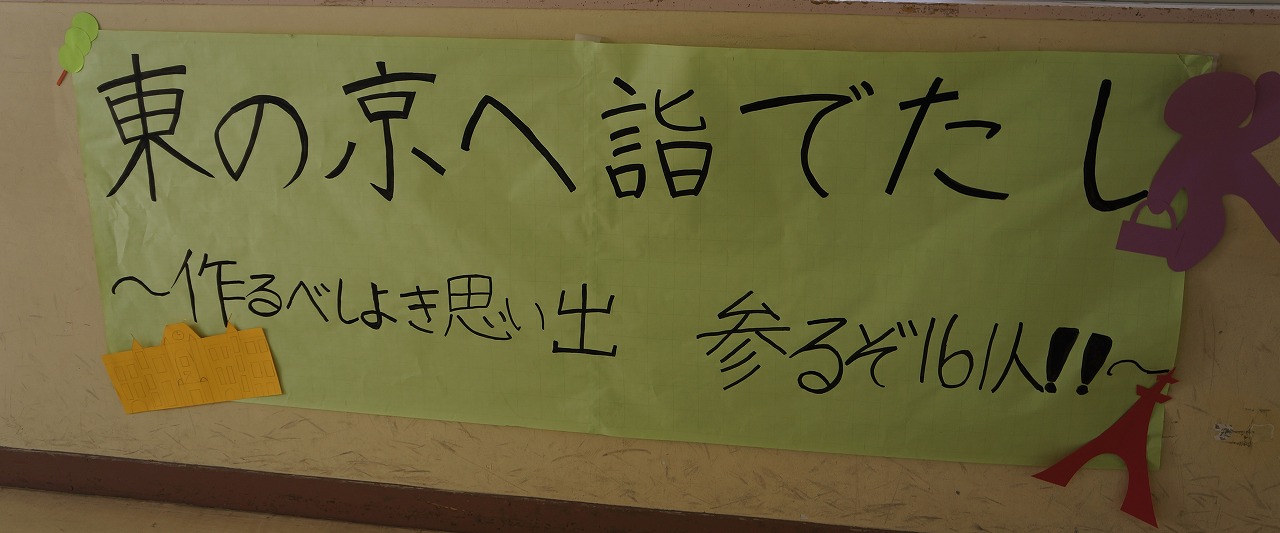 東の京へ詣でたし
～作るべしよき思い出 参るぞ161人!!～